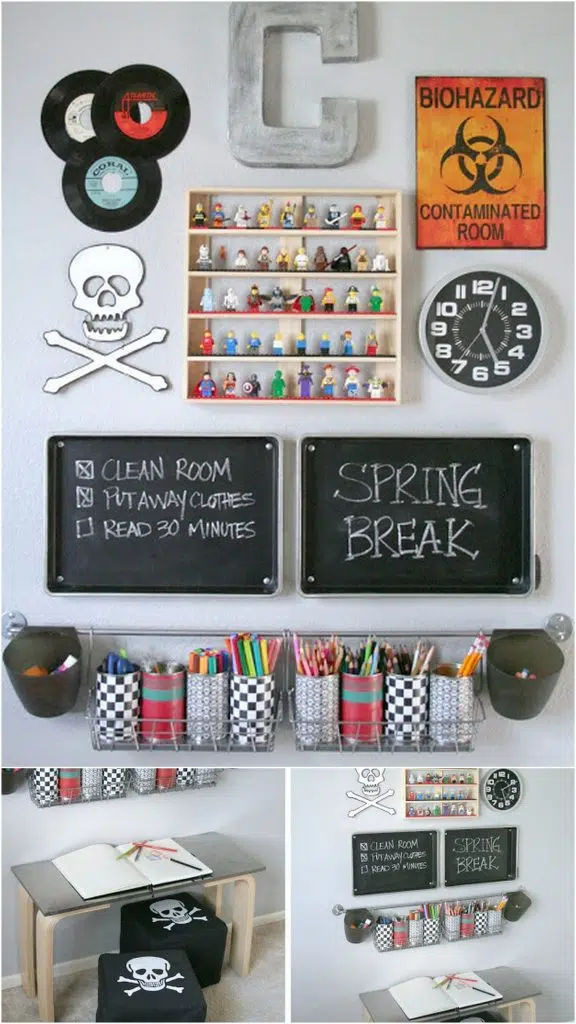 C
ATLANTIC
CORAL
BIOHAZARD
CONTAMINATED
ROOM
12
1
2
3
4
5
6
7
8
9
10
11
☒ CLEAN ROOM
☒ PUT AWAY CLOTHES
☐ READ 30 MINUTES
SPRING
BREAK
☒ CLEAN ROOM
☒ PUT AWAY CLOTHES
☐ READ 30 MINUTES
SPRING
BREAK